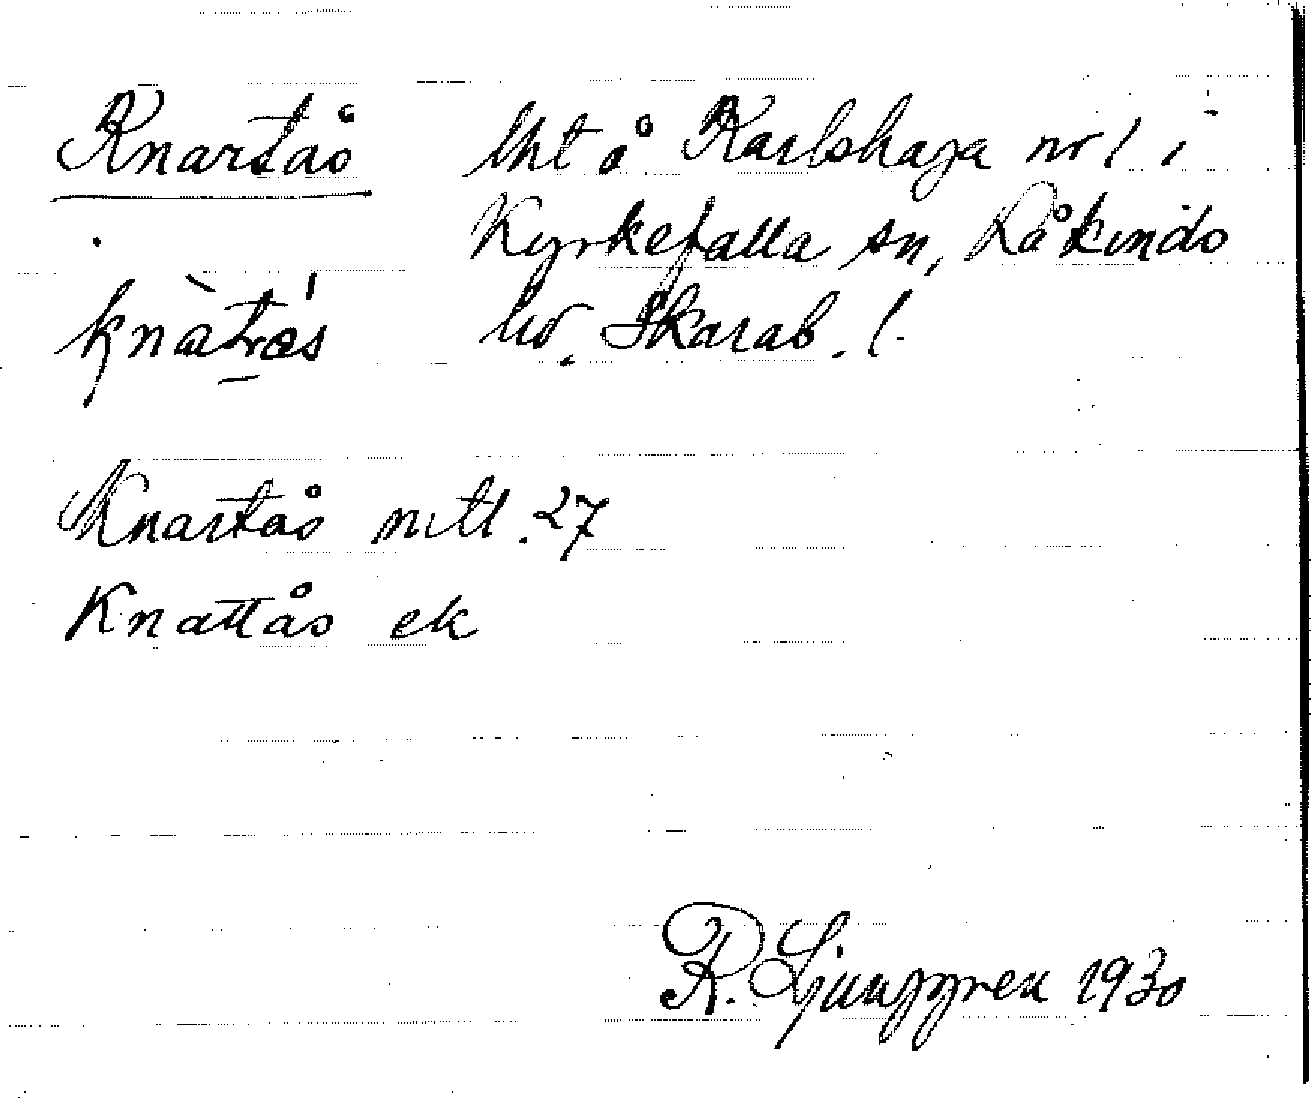 Knartås lht å Karlshaga nr 1 i
Kyrkefalla sn, Kåkinds
knàtrǝs hd. Skarab. l.
Knartås mtl. 27
Knattås ek
R. Ljunggren 1930